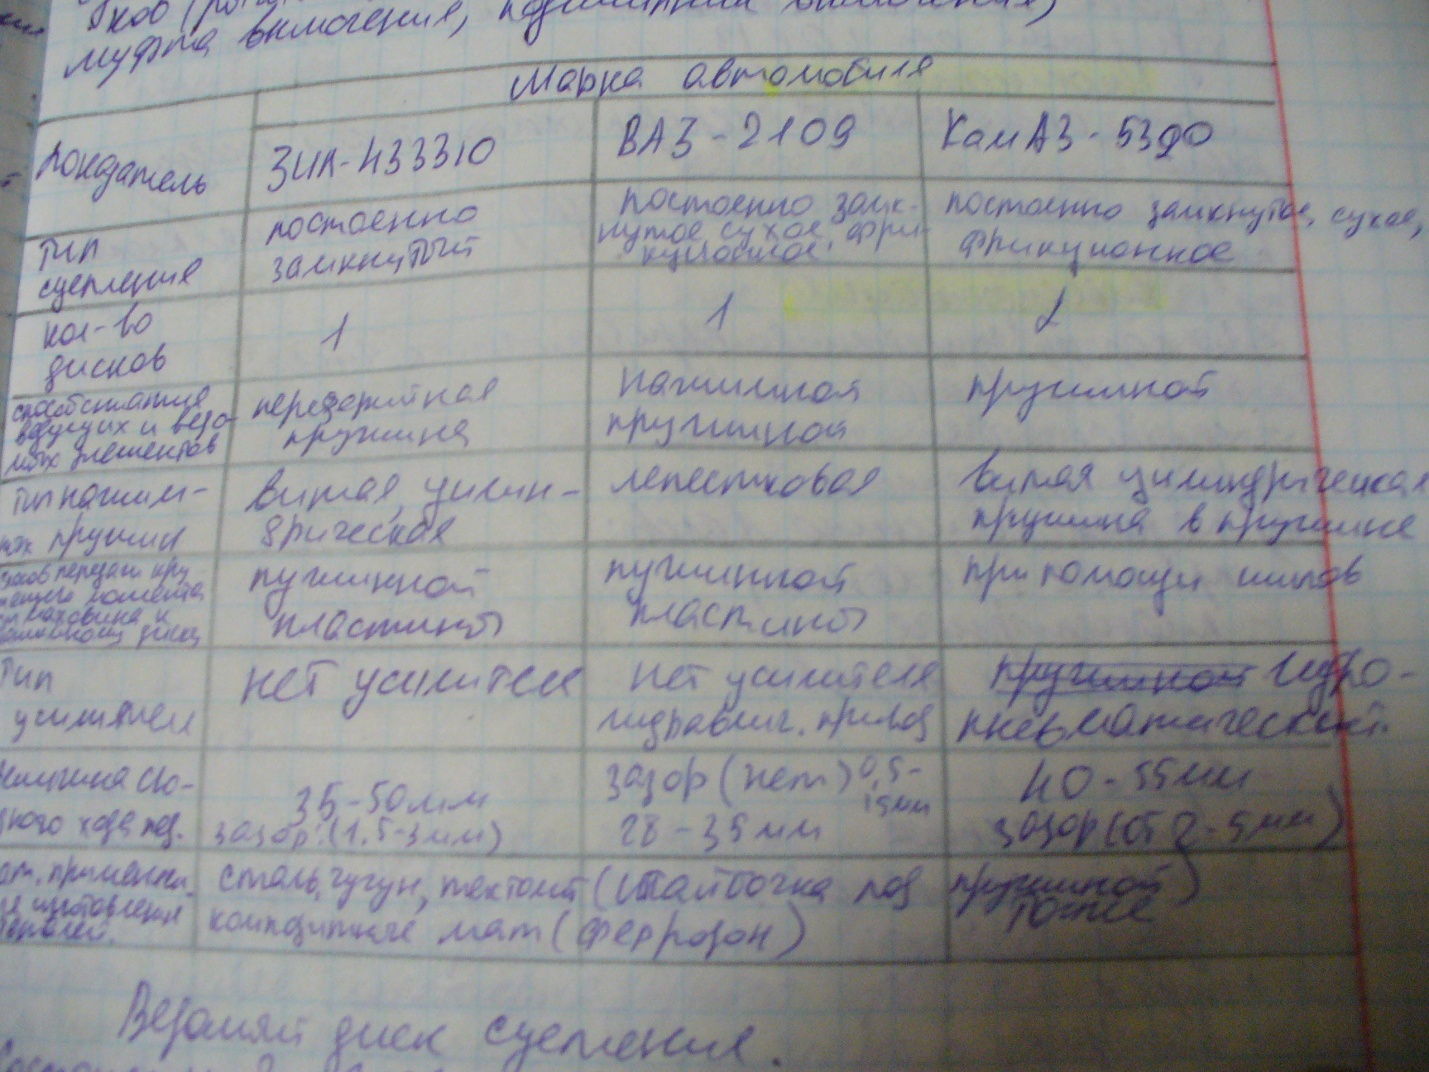 муфта выключения, подшипник выключения,
Марка автомобиля
Показатель
ЗИЛ-433310
ВАЗ-2109
КамАЗ-5320
тип
сцепления
постоенно
замкнутый
постоенно замк-
нутое, сухое, фри-
кционное
постоенно замкнутое, сухое,
фрикционное
кол-во
дисков
1
1
2
ведущих и ведо-
мых элементов
переферийная
пружина
нажимная
пружиной
пружиной
тип нажим-
ных пружин
витая, цилин-
дрическая
лепестковая
витая цилиндрическая
пружина в пружине
способ передачи кру-
тящего момента
маховика к
диску
пужинной
пластиной
пужинной
пластиной
при помощи шипов
Тип
усилителя
нет усилителя
нет усилителя
гидравлич. привод
пружинной гидро-
пневматический.
величина сво-
дного хода пед.
35-50 мм
зазор (1.5-3 мм)
зазор (нет) 0,5-
28-35 мм
40-55 мм
зазор (от 2-5 мм)
мат. применяем.
изготовления
деталей.
сталь, чугун, (шайбочка под пружиной)
мат (ферродон)
тоже
Ведомый диск сцепления.